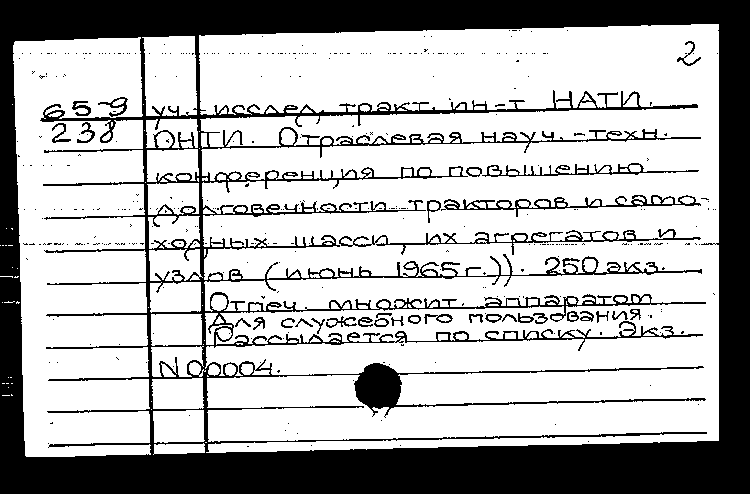 2
65-9 уч.-исслед. тракт. ин-т НАТИ.
238 ОНТИ. Отраслевая науч.-техн.
конференция по повышению
долговечности тракторов и само-
ходных шасси, их агрегатов и
узлов (июнь 1965г.)). 250 экз.
Отпеч. множит. аппаратом
Для служебного пользования.
Рассылается по списку. Экз.
N 00004.